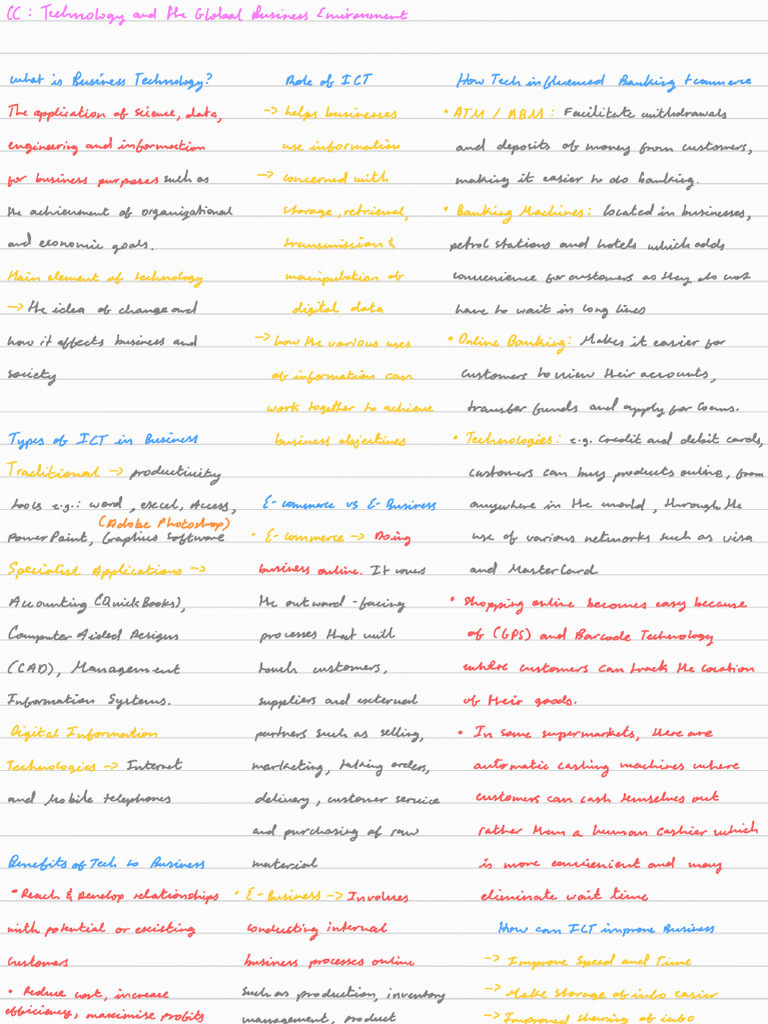 CC: Technology and the Global Business Environment
What is Business Technology?
The application of science, data,
engineering and information
for business purposes such as
the achievement of organizational
and economic goals.
Main element of technology
→ the idea of change and
how it affects business and
society
Types of ICT in Business
Traditional → productivity
tools e.g.: word, excel, Access,
(Adobe Photoshop)
PowerPoint, Graphics Software
Specialist Applications →
Accounting (QuickBooks),
Computer Aided Designs
(CAD), Management
Information Systems.
Digital Information
Technologies → Internet
and Mobile telephones
Benefits of Tech to Business
• Reach & Develop relationships
with potential or existing
customers
• Reduce cost, increase
efficiency, maximise profits
Role of ICT
→ helps businesses
use information
→ concerned with
storage, retrieval,
transmission &
manipulation of
digital data
→ how the various uses
of information can
work together to achieve
business objectives
E-commerce vs E-Business
• E-commerce → Doing
business online. It covers
the outward-facing
processes that will
touch customers,
suppliers and external
partners such as selling,
marketing, taking orders,
delivery, customer service
and purchasing of raw
material
• E-Business → Involves
conducting internal
business processes online
such as production, inventory
management, product
How Tech influenced Banking + commerce
• ATM / ABM: Facilitate withdrawals
and deposits of money from customers,
making it easier to do banking.
• Banking Machines: located in businesses,
petrol stations and hotels which adds
convenience for customers as they do not
have to wait in long lines
• Online Banking: Makes it easier for
customers to view their accounts,
transfer funds and apply for loans.
• Technologies: e.g. Credit and debit cards,
customers can buy products online, from
anywhere in the world, through the
use of various networks such as visa
and MasterCard
• Shopping online becomes easy because
of (GPS) and Barcode Technology
where customers can track the location
of their goods.
• In some supermarkets, there are
automatic cashing machines where
customers can cash themselves out
rather than a human cashier which
is more convienient and may
eliminate wait time
How can ICT improve Business
→ Improve Speed and Time
→ Make storage of info easier
→ Improved sharing of info